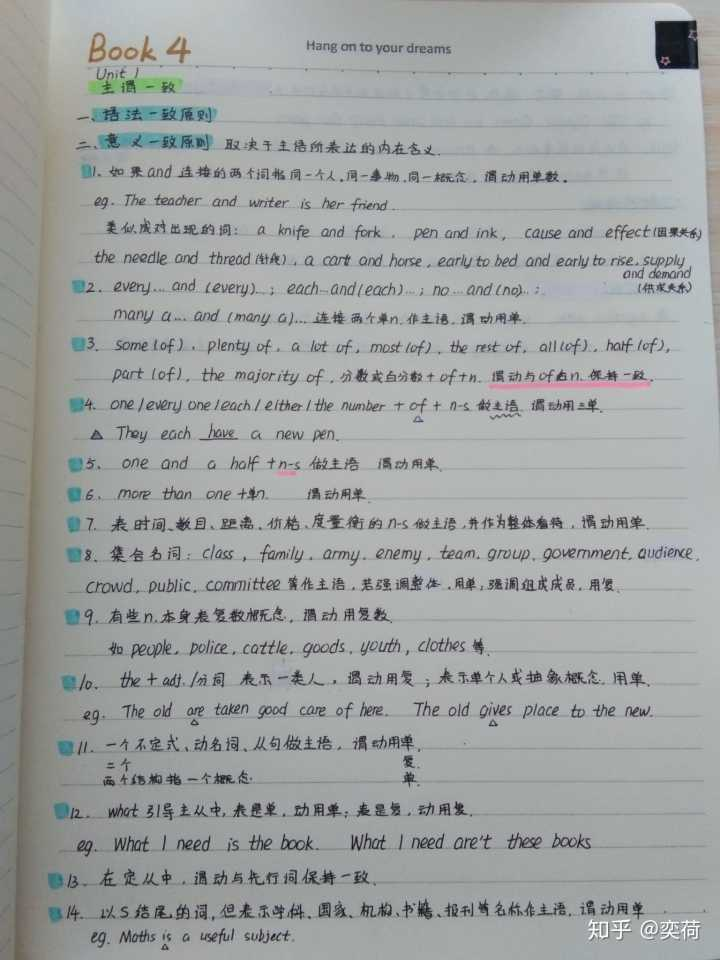 Book 4
Hang on to your dreams
Unit 1
主谓一致
一、语法一致原则
二、意义一致原则 取决于主语所表达的内在含义.
1、如果and 连接的两个词指同一个人、同一事物、同一概念, 谓动用单数。
eg. The teacher and writer is her friend.
类似成对出现的词: a knife and fork, pen and ink, cause and effect (因果关系)
the needle and thread (针线), a cart and horse, early to bed and early to rise, supply and demand
(供求关系)
2. every... and (every)...; each...and (each)...; no ... and (no)...;
many a... and (many a)... 连接两个单n. 作主语, 谓动用单.
3. some (of), plenty of, a lot of, most (of), the rest of, all (of), half (of),
part (of), the majority of, 分数或百分数 + of + n. 谓动与of后n. 保持一致.
4. one / every one / each / either / the number + of + n-s 做主语 谓动用三单.
They each have a new pen.
5. one and a half + n-s 做主语 谓动用单.
6. more than one + 单n. 谓动用单.
7. 表时间、数目、距离、价格、度量衡的n-s做主语,并作为整体看待, 谓动用单.
8. 集合名词: class, family, army, enemy, team, group, government, audience,
crowd, public, committee 等作主语, 若强调整体, 用单; 强调组成成员, 用复.
9. 有些n.本身表复数概念, 谓动用复数.
如 people, police, cattle, goods, youth, clothes 等.
10. the + adj. /分词 表示一类人, 谓动用复; 表示单个人或抽象概念, 用单.
eg. The old are taken good care of here. The old gives place to the new.
11. 一个不定式、动名词、从句做主语, 谓动用单.
二个 复.
两个结构指一个概念 单.
12. what 引导主从中, 表是单, 动用单; 表是复, 动用复.
eg. What I need is the book. What I need are't these books
13. 在定从中, 谓动与先行词保持一致.
14. 以S结尾的词, 但表示学科、国家、机构、书籍、报刊等名称作主语, 谓动用单
eg. Maths is a useful subject.
知乎 @奕荷